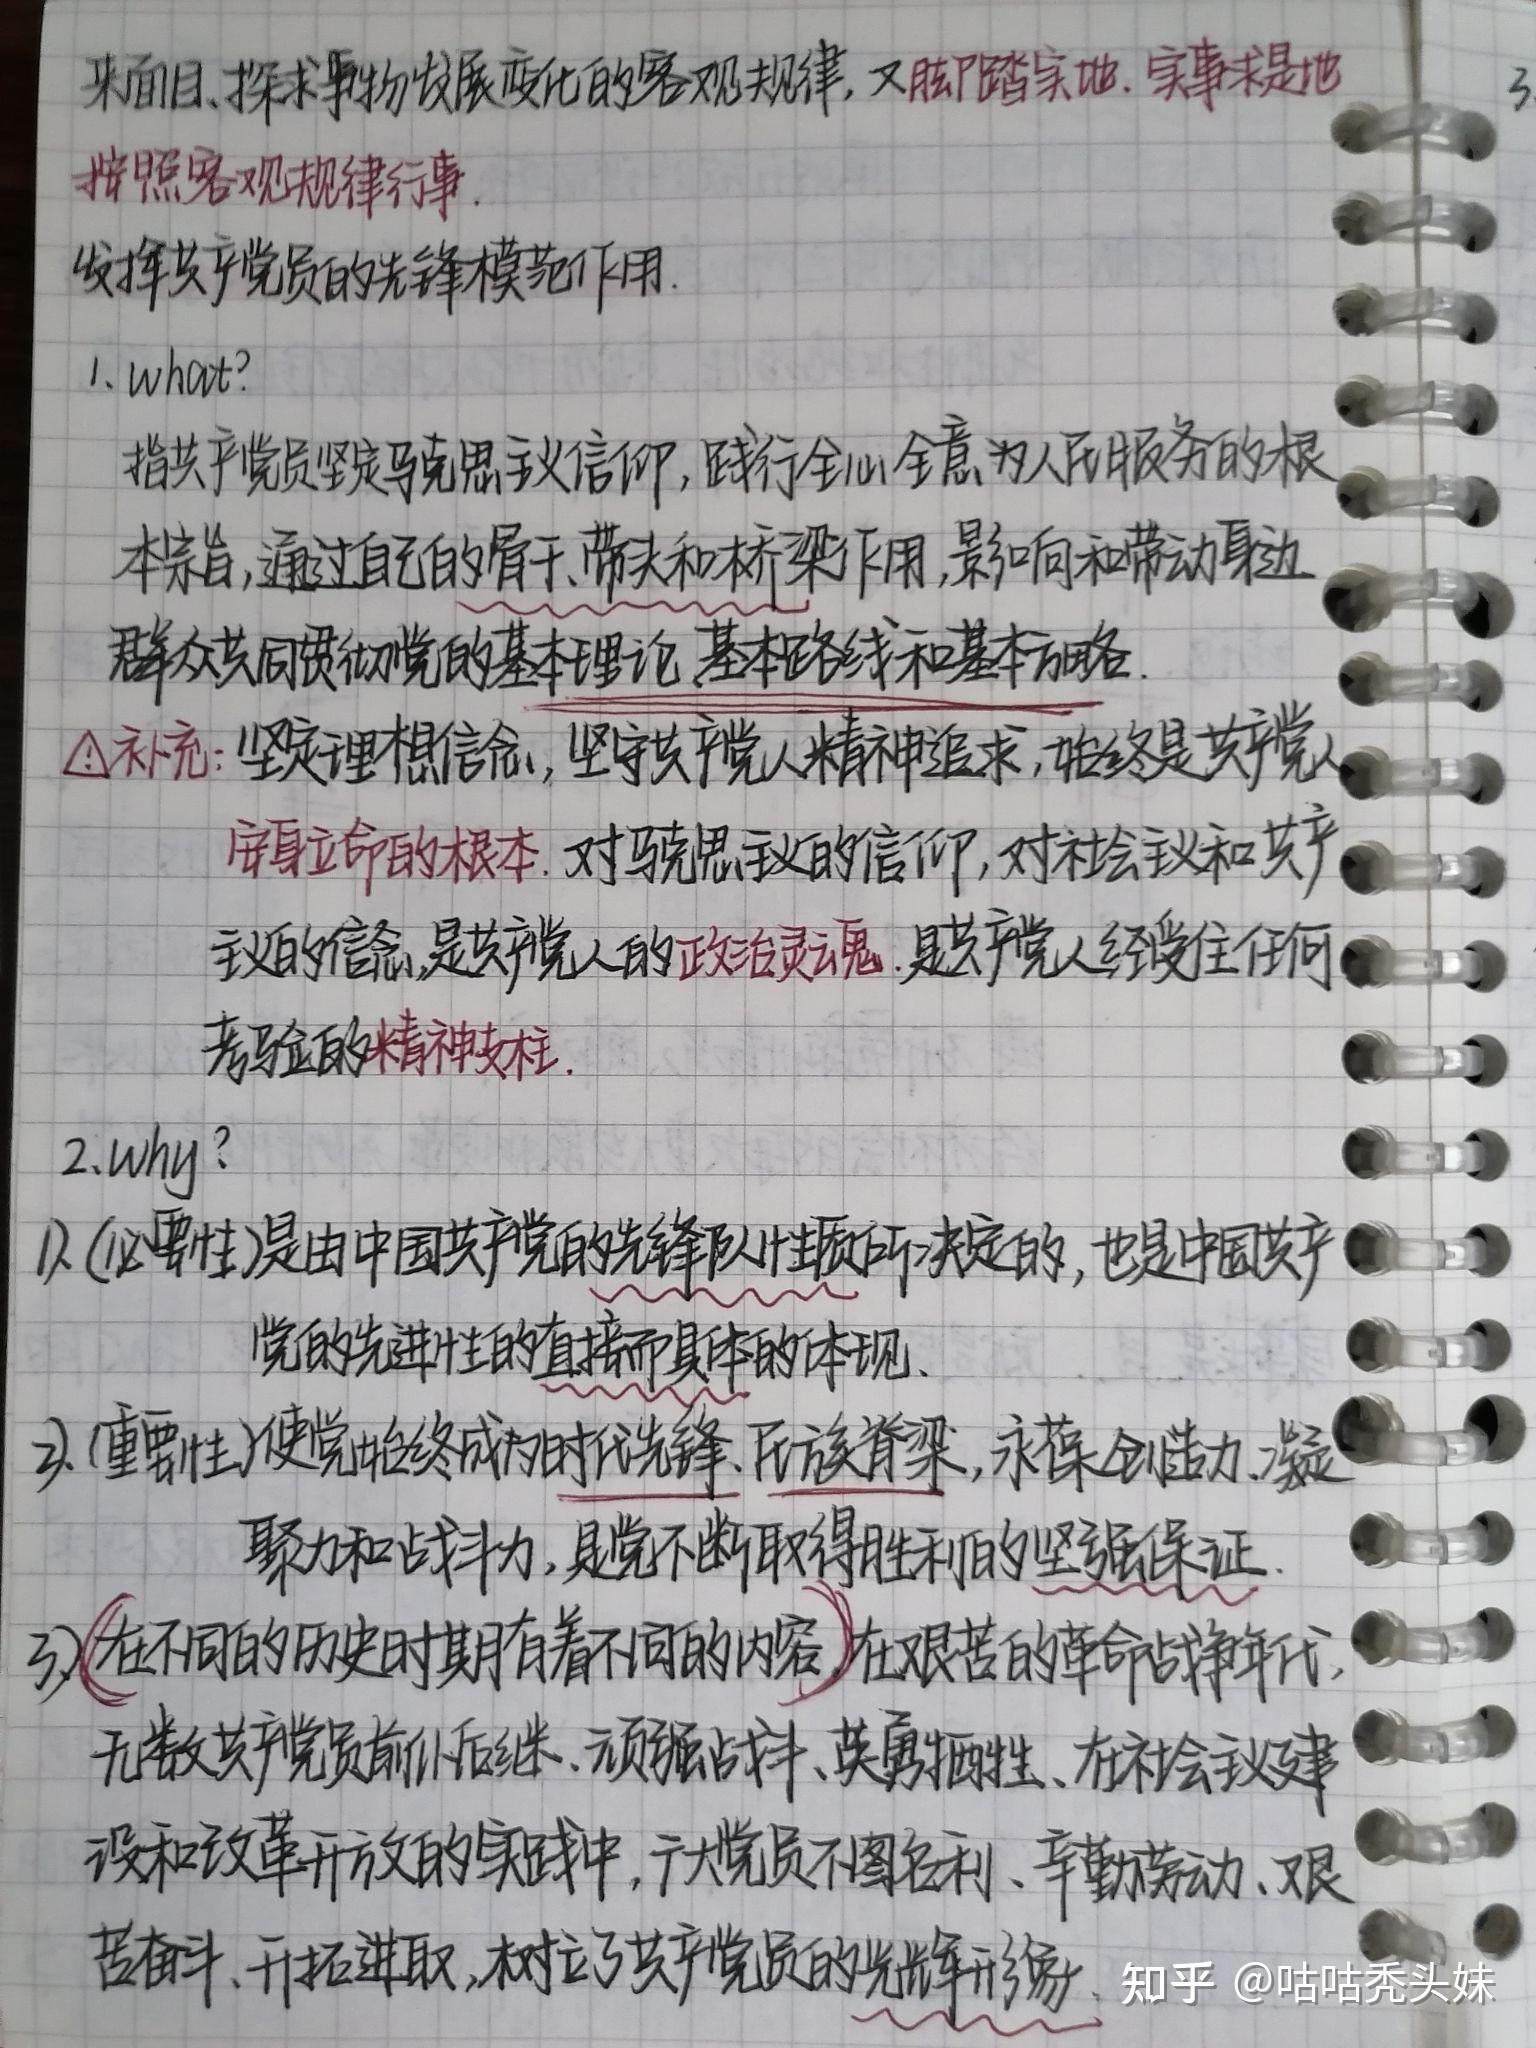 来面目、探求事物发展变化的客观规律，又脚踏实地.实事求是地
按照客观规律行事.
发挥共产党员的先锋模范作用.
1. what?
指共产党员坚定马克思主义信仰，践行全心全意为人民服务的根
本宗旨，通过自己的骨干、带头和桥梁作用，影响和带动身边
群众共同贯彻党的基本理论、基本路线和基本方略.
⚠补充：坚定理想信念，坚守共产党人精神追求，始终是共产党人
安身立命的根本.对马克思主义的信仰，对社会主义和共产
主义的信念，是共产党人的政治灵魂.是共产党人经受住任何
考验的精神支柱.
2. why?
1）.（必要性）是由中国共产党的先锋队性质所决定的，也是中国共产
党的先进性的直接而具体的体现、
2）.（重要性）使党始终成为时代先锋、民族脊梁，永葆创造力、凝
聚力和战斗力，是党不断取得胜利的坚强保证.
3）（在不同的历史时期有着不同的内容，）在艰苦的革命战争年代，
无数共产党员前仆后继、顽强战斗、英勇牺牲、在社会主义建
设和改革开放的实践中，广大党员不图名利、辛勤劳动、艰
苦奋斗、开拓进取，树立了共产党员的光辉形象.
知乎 @咕咕秃头妹